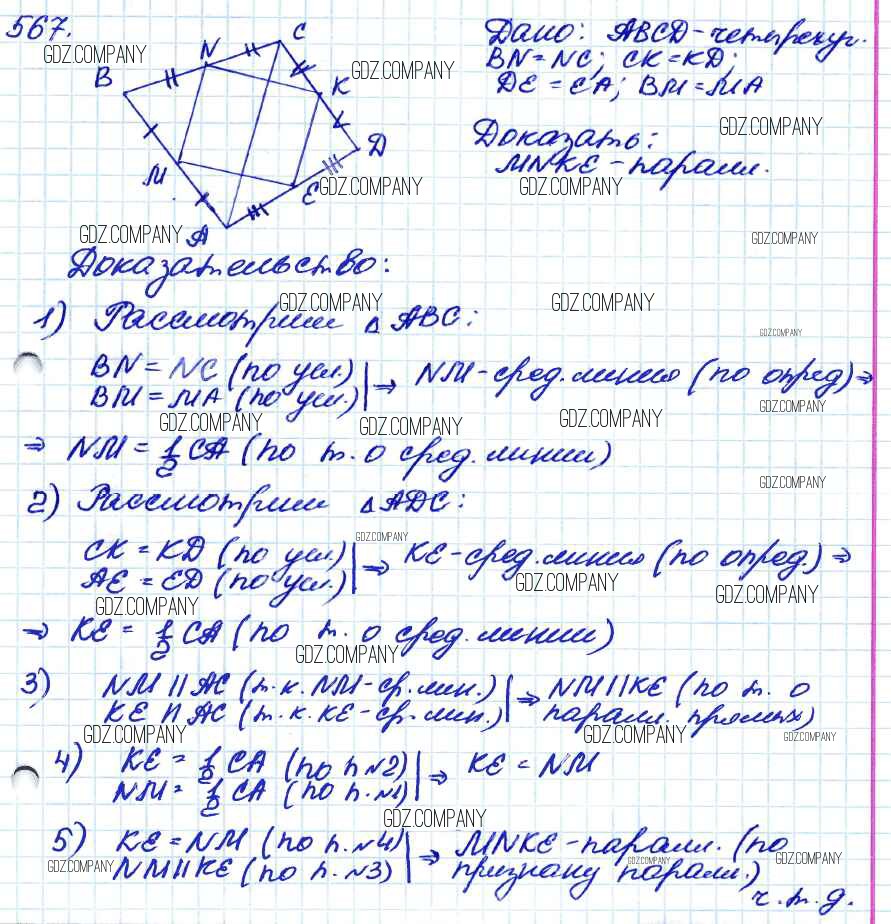 567.
GDZ.COMPANY
B
N
C
GDZ.COMPANY
K
D
M
E
GDZ.COMPANY
GDZ.COMPANY
A
Дано: ABCD - четырехуг.
BN = NC; CK = KD;
DE = EA; BM = MA
GDZ.COMPANY
Доказать:
MNKE - паралл.
GDZ.COMPANY
GDZ.COMPANY
Доказательство:
GDZ.COMPANY
GDZ.COMPANY
1) Рассмотрим △ ABC:
GDZ.COMPANY
BN = NC (по усл.) | ⇒ NM - сред. линия (по опред) ⇒
BM = MA (по усл.)
GDZ.COMPANY
GDZ.COMPANY
GDZ.COMPANY
GDZ.COMPANY
⇒ NM = 1/2 CA (по т. о сред. линии)
GDZ.COMPANY
2) Рассмотрим △ ADC:
GDZ.COMPANY
CK = KD (по усл.) | ⇒ KE - сред. линия (по опред.) ⇒
AE = ED (по усл.)
GDZ.COMPANY
GDZ.COMPANY
GDZ.COMPANY
⇒ KE = 1/2 CA (по т. о сред. линии)
GDZ.COMPANY
3) NM || AC (т.к. NM - ср. лин.) | ⇒ NM || KE (по т. о
KE || AC (т.к. KE - ср. лин.) паралл. прямых)
GDZ.COMPANY
GDZ.COMPANY
GDZ.COMPANY
4) KE = 1/2 CA (по п. №2) | ⇒ KE = NM
NM = 1/2 CA (по п. №1)
GDZ.COMPANY
5) KE = NM (по п. №4) | ⇒ MNKE - паралл. (по
NM || KE (по п. №3) признаку паралл.)
GDZ.COMPANY
GDZ.COMPANY
GDZ.COMPANY
ч.т.д.